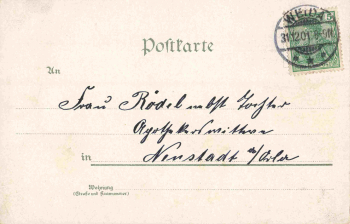 WEIDA
31.12.01
5
Postkarte
An
Frau Rödel nebst Tochter
Apothekerswittwe
in Neustadt a/Orla
Wohnung
(Straße und Hausnummer)